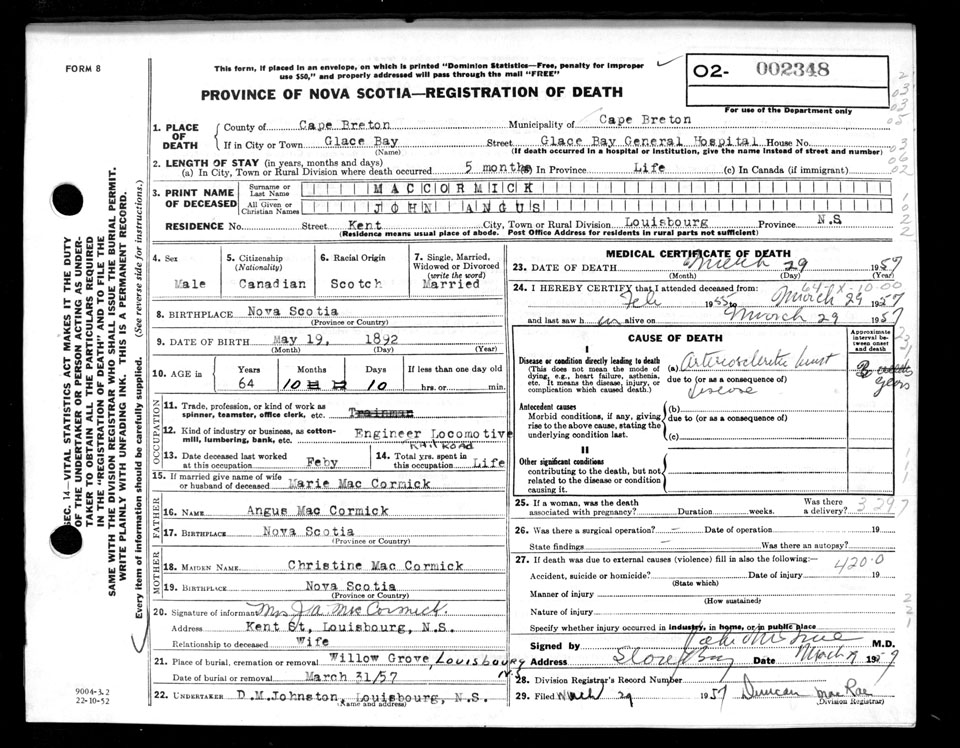 FORM 8
This form, if placed in an envelope, on which is printed "Dominion Statistics—Free, penalty for improper
use $50," and properly addressed will pass through the mail "FREE"
02- 002348
PROVINCE OF NOVA SCOTIA—REGISTRATION OF DEATH
For use of the Department only
1. PLACE OF DEATH { County of Cape Breton Municipality of Cape Breton
If in City or Town Glace Bay Street Glace Bay General Hospital House No.
(Name) (If death occurred in a hospital or institution, give the name instead of street and number)
2. LENGTH OF STAY (in years, months and days)
(a) In City, Town or Rural Division where death occurred 5 months In Province Life (c) In Canada (if immigrant)
3. PRINT NAME OF DECEASED { Surname or Last Name MACCORMICK
All Given or Christian Names JOHN ANGUS
RESIDENCE No. Street Kent City, Town or Rural Division Louisbourg Province N.S
(Residence means usual place of abode. Post Office Address for residents in rural parts not sufficient)
4. Sex
Male
5. Citizenship
(Nationality)
Canadian
6. Racial Origin
Scotch
7. Single, Married,
Widowed or Divorced
(write the word)
Married
8. BIRTHPLACE Nova Scotia
(Province or Country)
9. DATE OF BIRTH May 19, 1892
(Month) (Day) (Year)
10. AGE in { Years Months Days If less than one day old
64 10 10 hrs. or min.
OCCUPATION
11. Trade, profession, or kind of work as
spinner, teamster, office clerk, etc. Trainman
12. Kind of industry or business, as cotton-
mill, lumbering, bank, etc. Engineer Locomotive
RAILROAD
13. Date deceased last worked
at this occupation Feby
14. Total yrs. spent in
this occupation Life
15. If married give name of wife
or husband of deceased Marie Mac Cormick
FATHER
16. NAME Angus Mac Cormick
17. BIRTHPLACE Nova Scotia
(Province or Country)
MOTHER
18. MAIDEN NAME Christine Mac Cormick
19. BIRTHPLACE Nova Scotia
(Province or Country)
20. Signature of informant Mrs J A MacCormick.
Address Kent St, Louisbourg, N.S.
Relationship to deceased Wife
21. Place of burial, cremation or removal Willow Grove Louisbourg N.S
Date of burial or removal March 31/57
22. UNDERTAKER D.M.Johnston, Louisbourg, N.S.
(Name and address)
MEDICAL CERTIFICATE OF DEATH
23. DATE OF DEATH March 29 1957
(Month) (Day) (Year)
64-X-10-00
24. I HEREBY CERTIFY that I attended deceased from:
Feb 1955 to March 29 1957
and last saw h im alive on March 29 1957
CAUSE OF DEATH
Approximate interval between onset and death
I
Disease or condition directly leading to death
(This does not mean the mode of
dying, e.g., heart failure, asthenia,
etc. It means the disease, injury, or
complication which caused death.)
(a) Arteriosclerotic heart
due to (or as a consequence of)
disease
years
Antecedent causes
Morbid conditions, if any, giving
rise to the above cause, stating the
underlying condition last.
(b)
due to (or as a consequence of)
(c)
II
Other significant conditions
contributing to the death, but not
related to the disease or condition
causing it.
25. If a woman, was the death
associated with pregnancy? Duration weeks. Was there
a delivery? 3 297
26. Was there a surgical operation? – Date of operation 19
State findings – Was there an autopsy?
27. If death was due to external causes (violence) fill in also the following:—
420·0
Accident, suicide or homicide? Date of injury 19
(State which)
Manner of injury
(How sustained)
Nature of injury
Specify whether injury occurred in industry, in home, or in public place
Signed by M.D.
Address Glace Bay Date March 29 1957
28. Division Registrar's Record Number
29. Filed March 29 1957 Duncan MacRae
(Division Registrar)
9004-3.2
22-10-52
SEC. 14—VITAL STATISTICS ACT MAKES IT THE DUTY
OF THE UNDERTAKER OR PERSON ACTING AS UNDER-
TAKER TO OBTAIN ALL THE PARTICULARS REQUIRED
IN THE "REGISTRATION OF DEATH" AND TO FILE THE
SAME WITH THE DIVISION REGISTRAR WHO SHALL ISSUE THE BURIAL PERMIT.
WRITE PLAINLY WITH UNFADING INK. THIS IS A PERMANENT RECORD.
Every item of information should be carefully supplied. (See reverse side for instructions.)